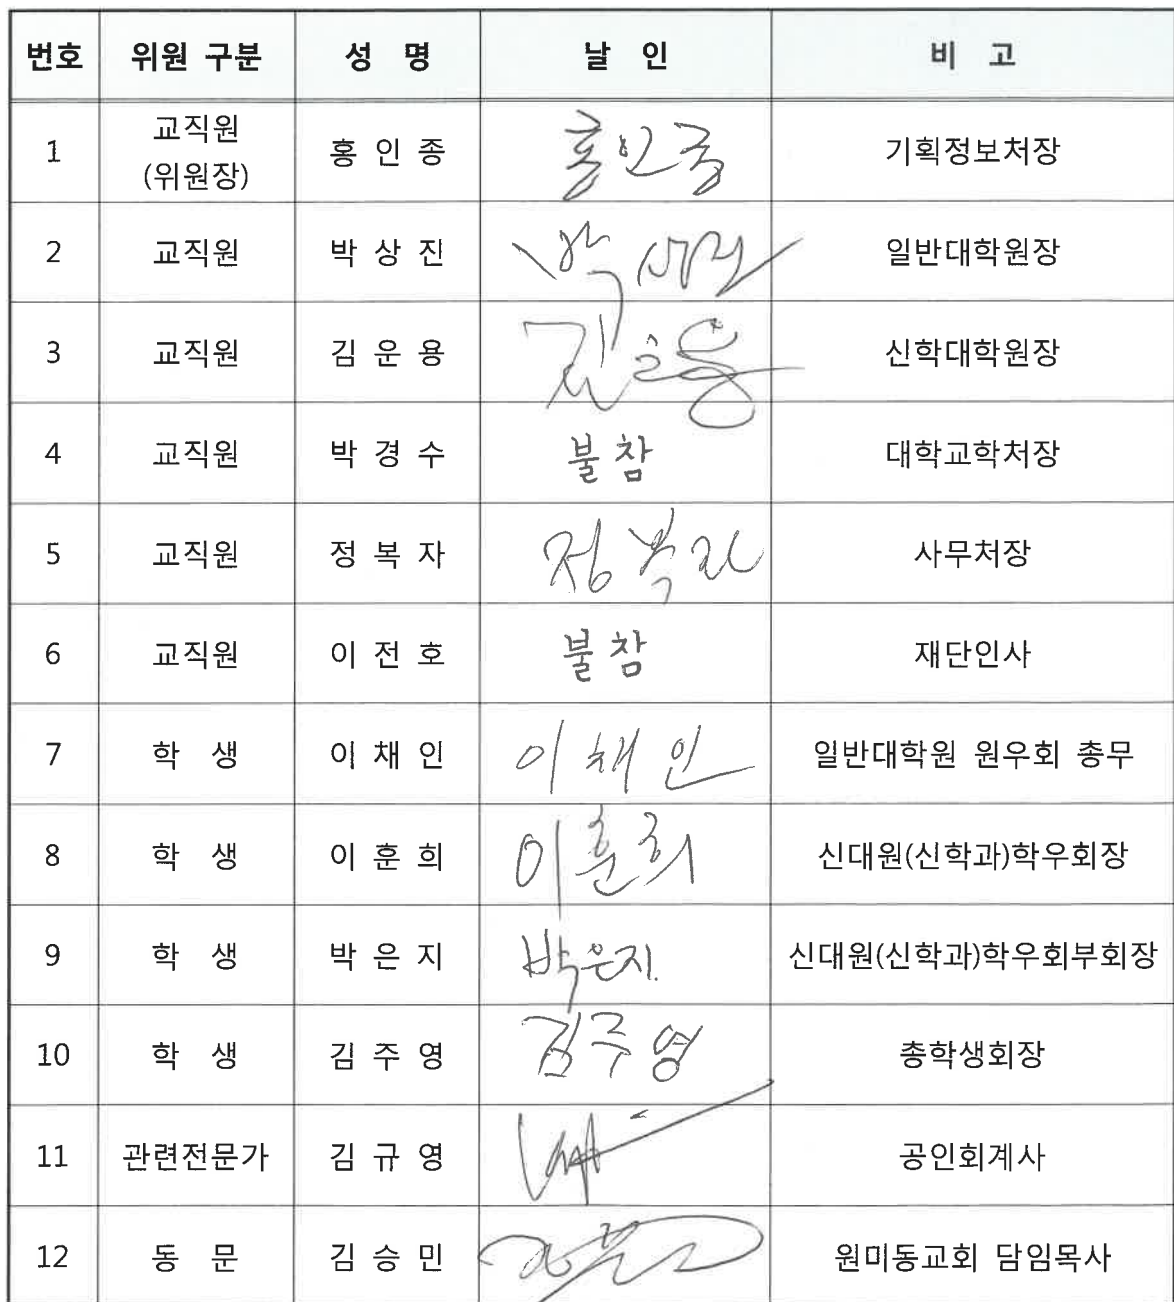 번호 위원 구분 성 명 날 인 비 고
1 교직원 (위원장) 홍 인 종 홍인종 기획정보처장
2 교직원 박 상 진 박상진 일반대학원장
3 교직원 김 운 용 김운용 신학대학원장
4 교직원 박 경 수 불참 대학교학처장
5 교직원 정 복 자 정복자 사무처장
6 교직원 이 전 호 불참 재단인사
7 학 생 이 채 인 이채인 일반대학원 원우회 총무
8 학 생 이 훈 희 이훈희 신대원(신학과)학우회장
9 학 생 박 은 지 박은지. 신대원(신학과)학우회부회장
10 학 생 김 주 영 김주영 총학생회장
11 관련전문가 김 규 영 공인회계사
12 동 문 김 승 민 원미동교회 담임목사